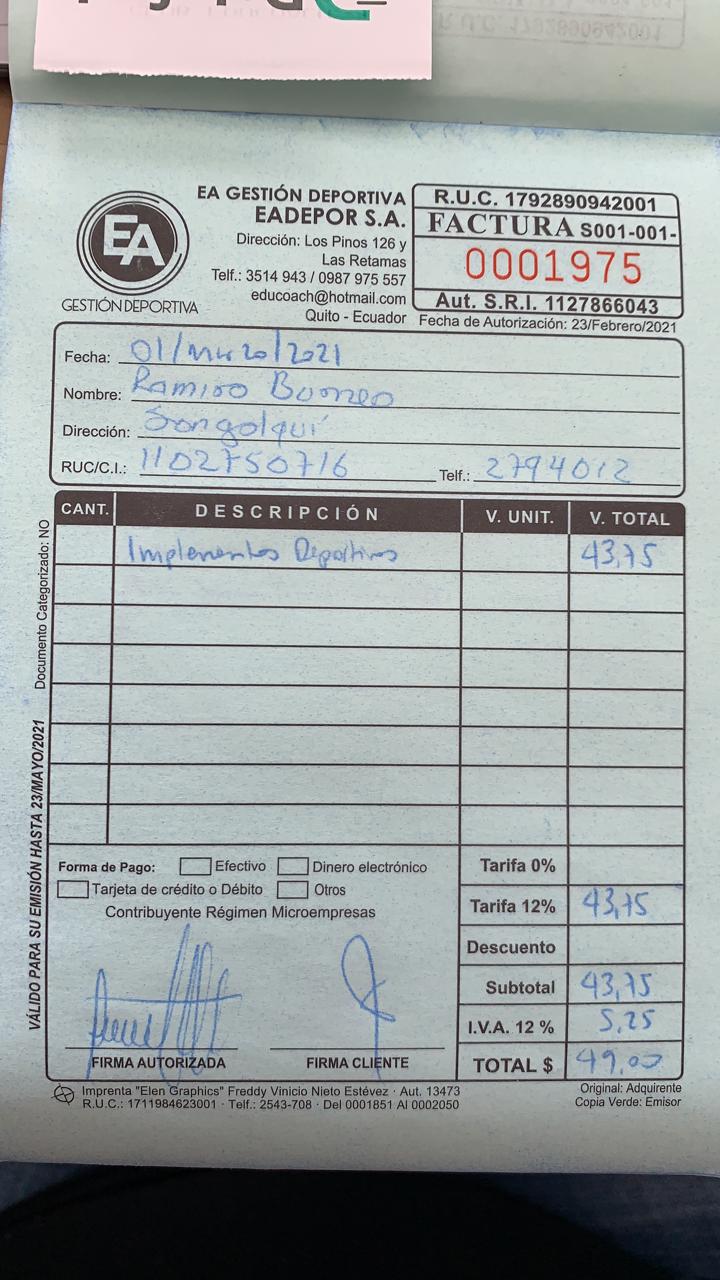 R.U.C. 1792890942001
EA
GESTIÓN DEPORTIVA
EA GESTIÓN DEPORTIVA
EADEPOR S.A.
Dirección: Los Pinos 126 y
Las Retamas
Telf.: 3514 943 / 0987 975 557
educoach@hotmail.com
Quito - Ecuador
R.U.C. 1792890942001
FACTURA S001-001-
0001975
Aut. S.R.I. 1127866043
Fecha de Autorización: 23/Febrero/2021
Fecha: 01/Marzo/2021
Nombre: Ramiro Burneo
Dirección: Sangolquí
RUC/C.I.: 1102750716 Telf.: 2794012
CANT. DESCRIPCIÓN V. UNIT. V. TOTAL
Implementos Deportivos 43,75
Documento Categorizado: NO
VÁLIDO PARA SU EMISIÓN HASTA 23/MAYO/2021
Forma de Pago: Efectivo Dinero electrónico
Tarjeta de crédito o Débito Otros
Contribuyente Régimen Microempresas
FIRMA AUTORIZADA FIRMA CLIENTE
Tarifa 0%
Tarifa 12% 43,75
Descuento
Subtotal 43,75
I.V.A. 12 % 5,25
TOTAL $ 49,00
Imprenta "Elen Graphics" Freddy Vinicio Nieto Estévez · Aut. 13473
R.U.C.: 1711984623001 · Telf.: 2543-708 · Del 0001851 Al 0002050
Original: Adquirente
Copia Verde: Emisor